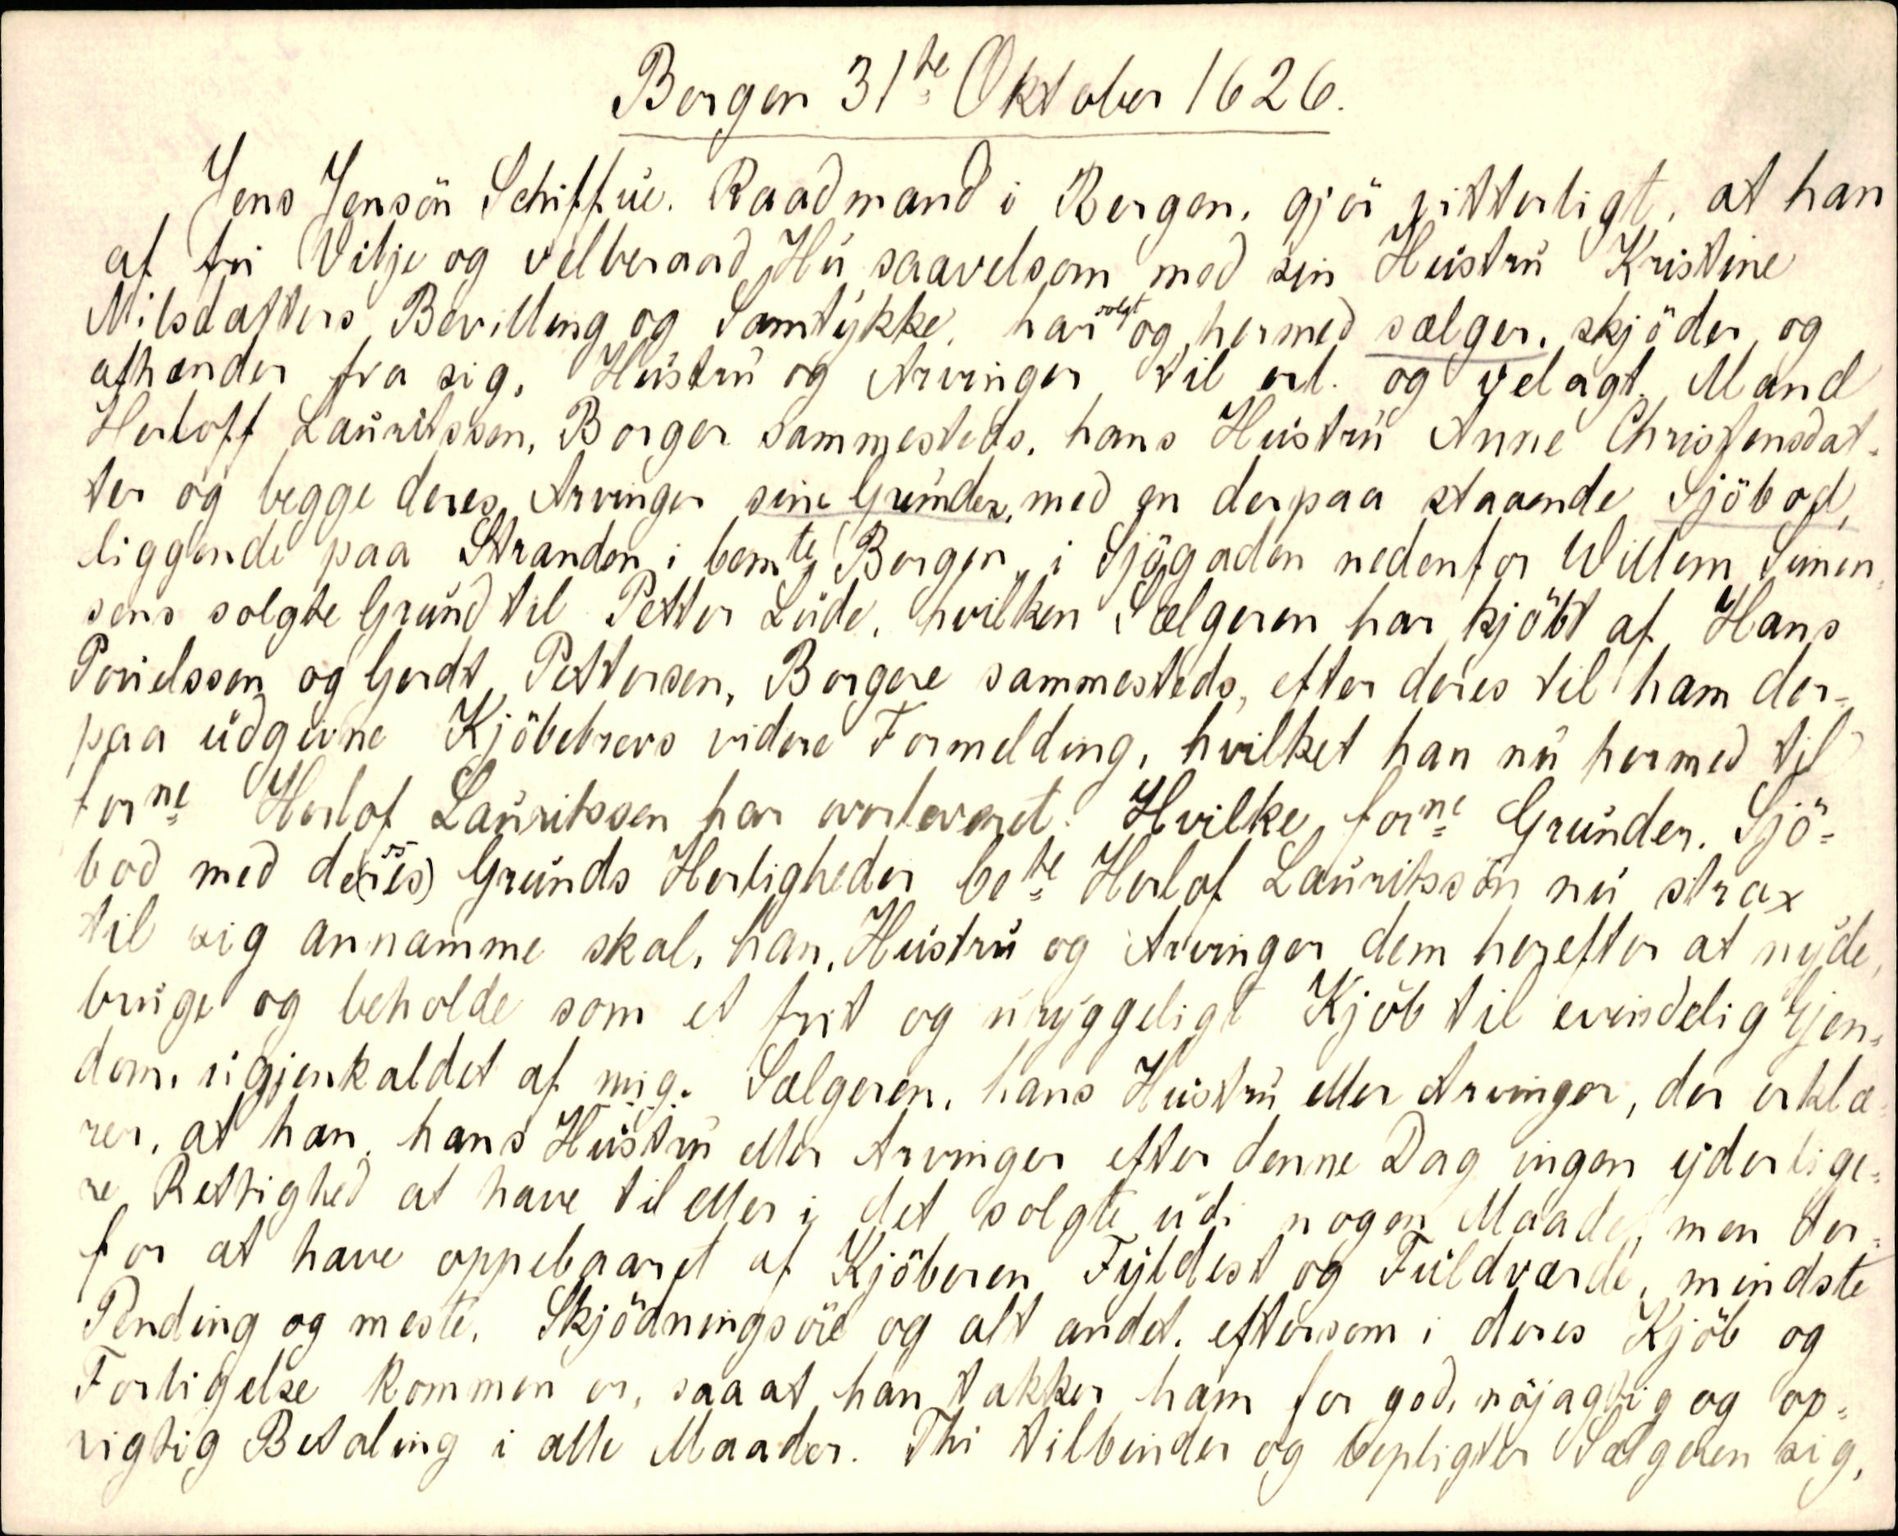 Bergen 31te Oktober 1626.
Jens Jensön Schiffue. Raadmand i Bergen, gjör vitterligt, at han
af fri Vilje og velberaad Hu, saavelsom med sin Hustru Kristine
Nilsdatters Bevilling og Samtykke, har solgt og hermed sælger, skjöder og
afhænder fra sig, Hustru og Arvinger til erl. og velagt. Mand
Herloff Lauritssen, Borger sammesteds, hans Hustru Anne Christensdat-
ter og begge deres Arvinger sine Grunder, med en derpaa staaende Sjöbod,
liggende paa Stranden i bemte Bergen, i Sjögaden nedenfor Willem Simen-
sens solgte Grund til Petter Lude, hvilken Sælgeren har kjöbt af Hans
Povelssen og Gerdt Pettersen, Borgere sammesteds, efter deres til ham der-
paa udgivne Kjöbebrevs videre Formelding, hvilket han nu hermed til
forne Herlof Lauritssen har overleveret. Hvilke forne Grunder, Sjö-
bod med de(res) Grunds Herligheder bete Herlof Lauritssön nu strax
til sig annamme skal, han, Hustru og Arvinger dem herefter at nyde,
bruge og beholde som et frit og uryggeligt Kjöb til evindelig Ejen-
dom, uigjenkaldet af mig. Sælgeren, hans Hustru eller Arvinger, der erklæ-
rer, at han, hans Hustru eller Arvinger efter denne Dag ingen yderlige-
re Rettighed at have til eller i det solgte udi nogen Maade, men der-
for at have oppebaaret af Kjöberen Fyldest og Fuldværde, mindste
Pending og meste, Skjödningsöre og alt andet, eftersom i deres Kjöb og
Forligelse kommen er, saa at han takker ham for god, nöjagtig og op-
rigtig Betaling i alle Maader. Thi tilbinder og bepligter Sælgeren sig,